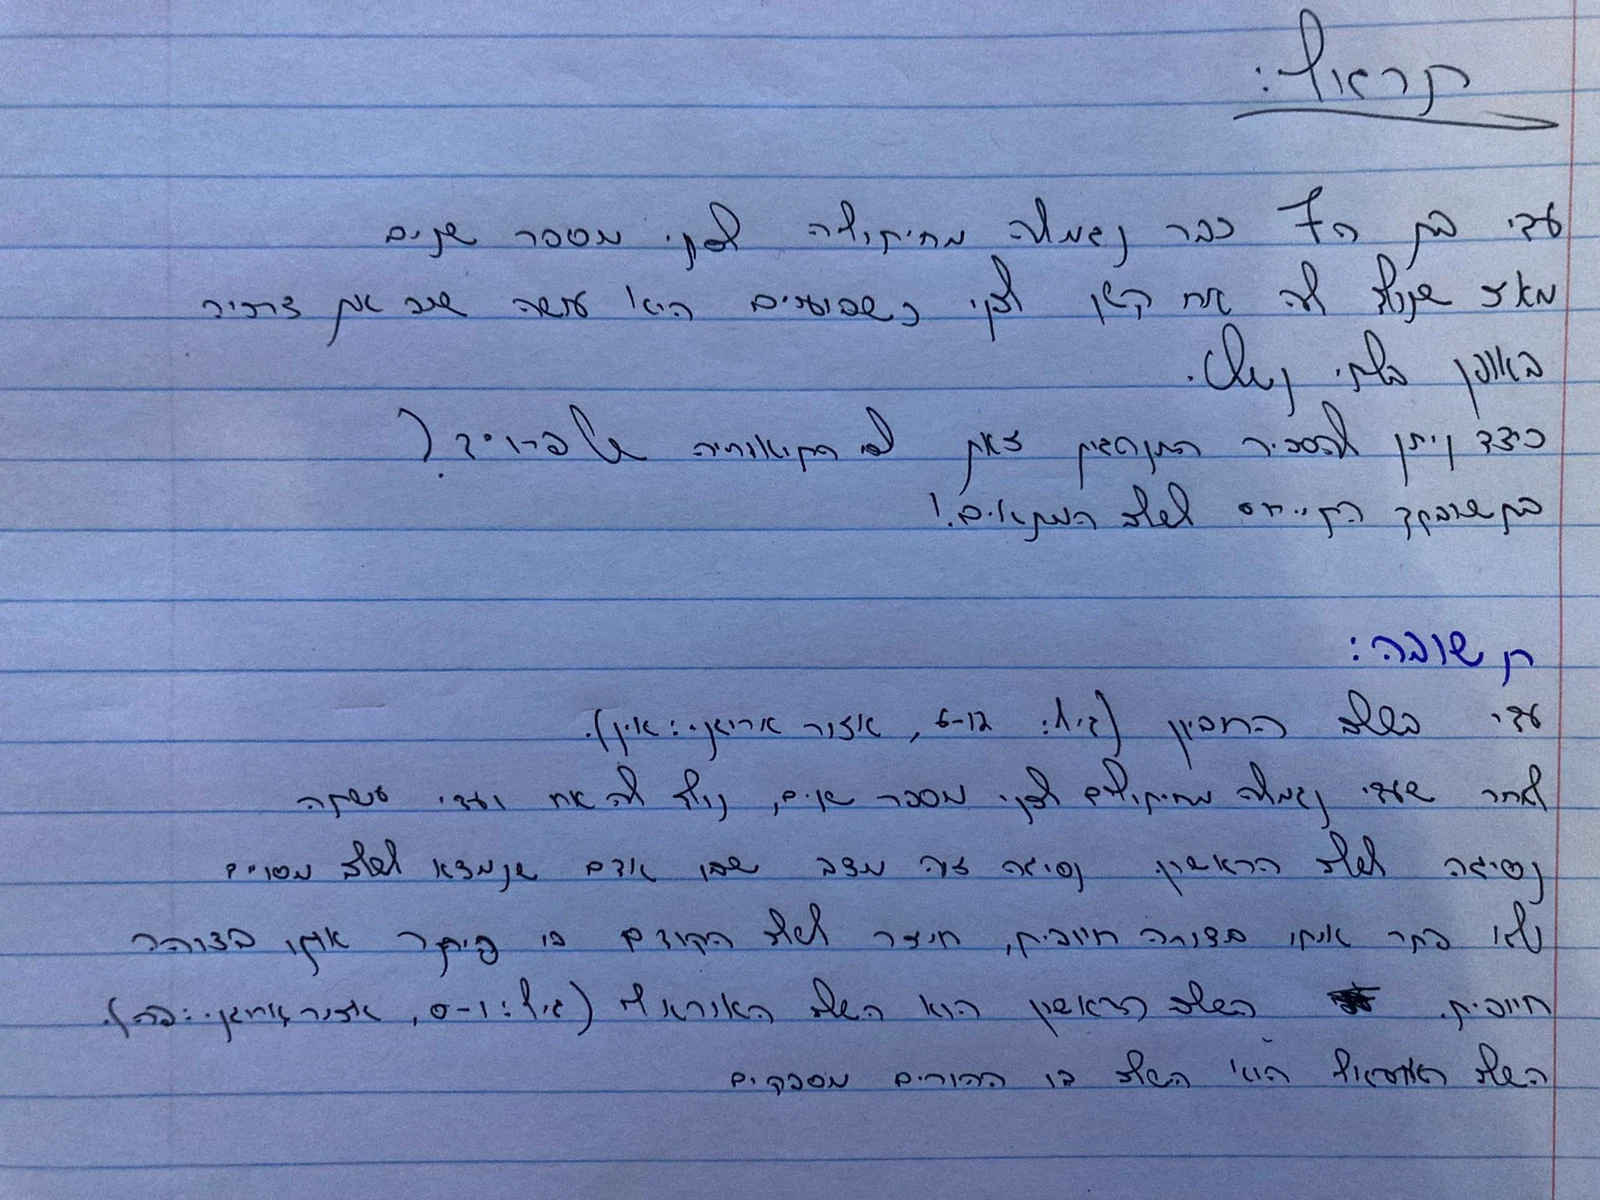 תרגול:
עדי בת ה7 כבר נגמלה מחיתולה לפני מספר שנים
מאז שנולד לה אח קטן לפני כשבועיים היא עושה שוב את צרכיה
באופן בלתי נשלט.
כיצד ניתן להסביר התנהגות זאת לפי התיאוריה של פרויד?
בתשובתך התייחס לשלב המתאים!
תשובה:
עדי בשלב החביון (גיל: 6-12, אזור ארוגני: אין).
לאחר שעדי נגמלה מחיתולים לפני מספר שנים, נולד לה אח ועדי עשתה
נסיגה לשלב הראשון. נסיגה זה מצב שבו אדם שנמצא לשלב מסויים
ולא פתר אותו בצורה חיובית, חוזר לשלב הקודם בו פיתר אותו בצורה
חיובית. השלב הראשון הוא השלב האוראלי (גיל: 0-1, אזור ארוגני: פה).
השלב האוראלי הוא השלב בו ההורים מספקים